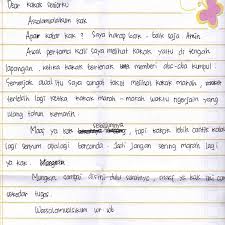 Dear kakak seniorku
Assalamualaikum kak
Apa kabar kak ? Saya harap baik - baik saja Amin
Awal pertama kali saya melihat kakak yaitu di tengah
lapangan. ketika kakak berteriak memberi aba-aba kumpul.
Semenjak awal itu saya sangat takut melihat kakak
terlebih lagi ketika kakak marah - marah waktu ngerjain yang
ulang tahun kemarin.
Maaf ya kak sebelumnya, tapi kakak lebih cantik kalau
lagi senyum apalagi bercanda. Jadi jangan sering marah lagi
ya kak.
Mungkin sampai disini dulu suratnya, maaf ya kak ini
sekedar tugas.
Wassalamualaikum wr wb